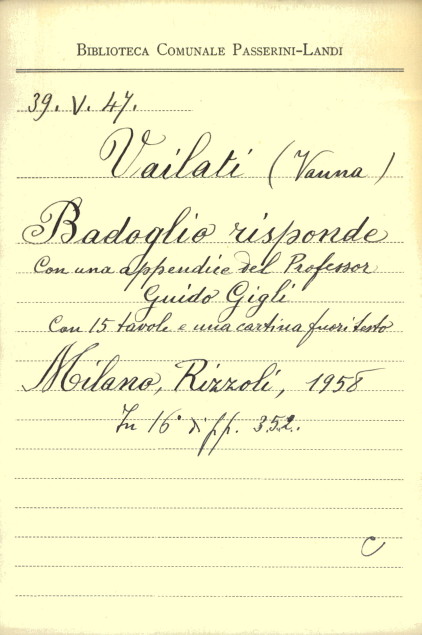 BIBLIOTECA COMUNALE PASSERINI-LANDI
39. V. 47.
Vailati (Vanna)
Badoglio risponde
Con una appendice del Professor
Guido Gigli
Con 15 tavole e una cartina fuori testo
Milano, Rizzoli, 1958
In 16° di pp. 352.
C